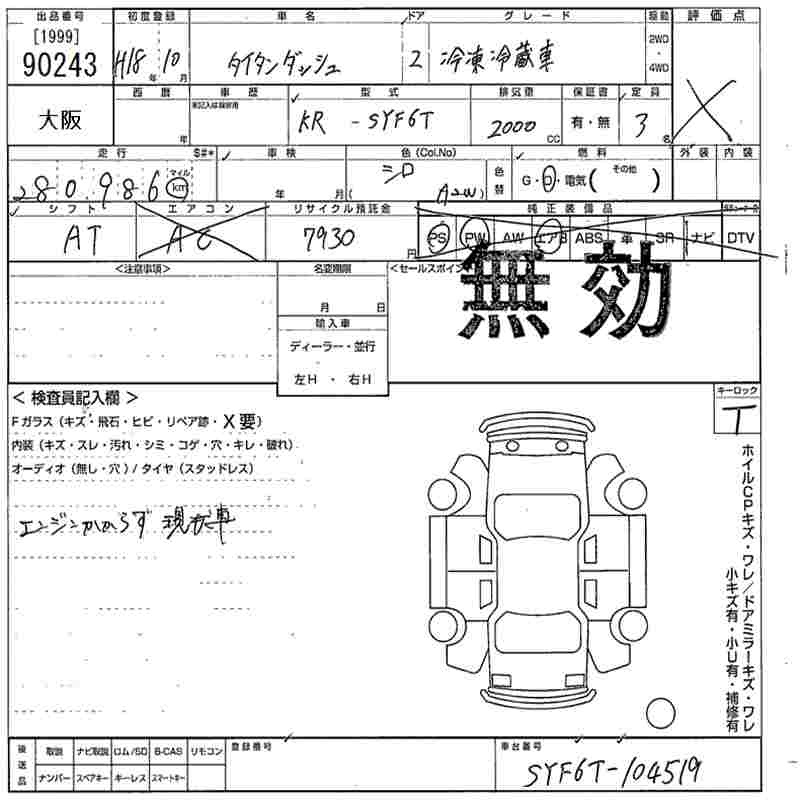 出品番号 初度登録 車名 ドア グレード 駆動 評価点
[1999]
90243 H18年 10月 タイタンダッシュ 2 冷凍冷蔵車 2WD・4WD X
大阪 西暦 車歴 型式 排気量 保証書 定員
未記入は自家用
年 KR -SYF6T 2000cc 有・無 3名
走行 S#* 車検 色(Col.No) 燃料 外装 内装
280,986 マイル km 年 月( シロ A2W) 色替 G・D・電気( その他 )
シフト エアコン リサイクル預託金 純正装備品
AT AC 7930円 PS PW AW エアB ABS 革 SR ナビ DTV
<注意事項> 名変期限 <セールスポイント
無効
月 日
輸入車
ディーラー・並行
左H ・ 右H
< 検査員記入欄 > キーロック
T
Fガラス(キズ・飛石・ヒビ・リペア跡・X要)
内装(キズ・スレ・汚れ・シミ・コゲ・穴・キレ・破れ)
オーディオ(無し・穴)/タイヤ(スタッドレス)
エンジンかからず 現状車
ホイルCPキズ・ワレ/ドアミラーキズ・ワレ
小キズ有・小U有・補修有
後送品 取説 ナビ取説 ロム/SD B-CAS リモコン 登録番号 車台番号
ナンバー スペアキー キーレス スマートキー
SYF6T-104519